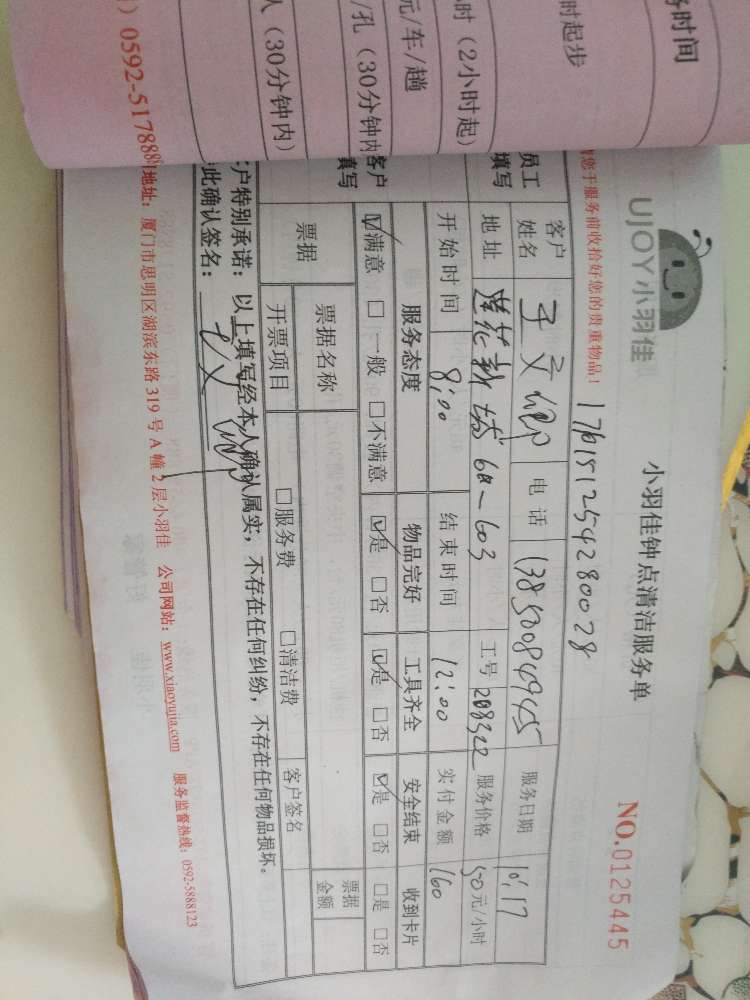 务时间
时起步
时（2小时起）
元/车/趟
/孔（30分钟内
人（30分钟内）
UJOY小羽佳
小羽佳钟点清洁服务单
NO.0125445
您于服务前收拾好您的贵重物品！
17615125428 0028
员工填写
客户姓名
电话 13850084945
服务日期 10.17
地址 莲花新城 6a-603
工号 208322
服务价格 50元/小时
开始时间 8:00
结束时间 12:00
实付金额 160
客户填写
服务态度 物品完好 工具齐全 安全结束 收到卡片
☑满意 □一般 □不满意 ☑是 □否 ☑是 □否 ☑是 □否 □是 □否
票据
票据名称
票据金额
开票项目 □服务费 □清洁费
客户签名
户特别承诺：以上填写经本人确认属实，不存在任何纠纷，不存在任何物品损坏。
此确认签名：
0592-517888 地址：厦门市思明区湖滨东路319号A幢2层小羽佳 公司网站：www.xiaoyujia.com 服务监督热线：0592-5888123